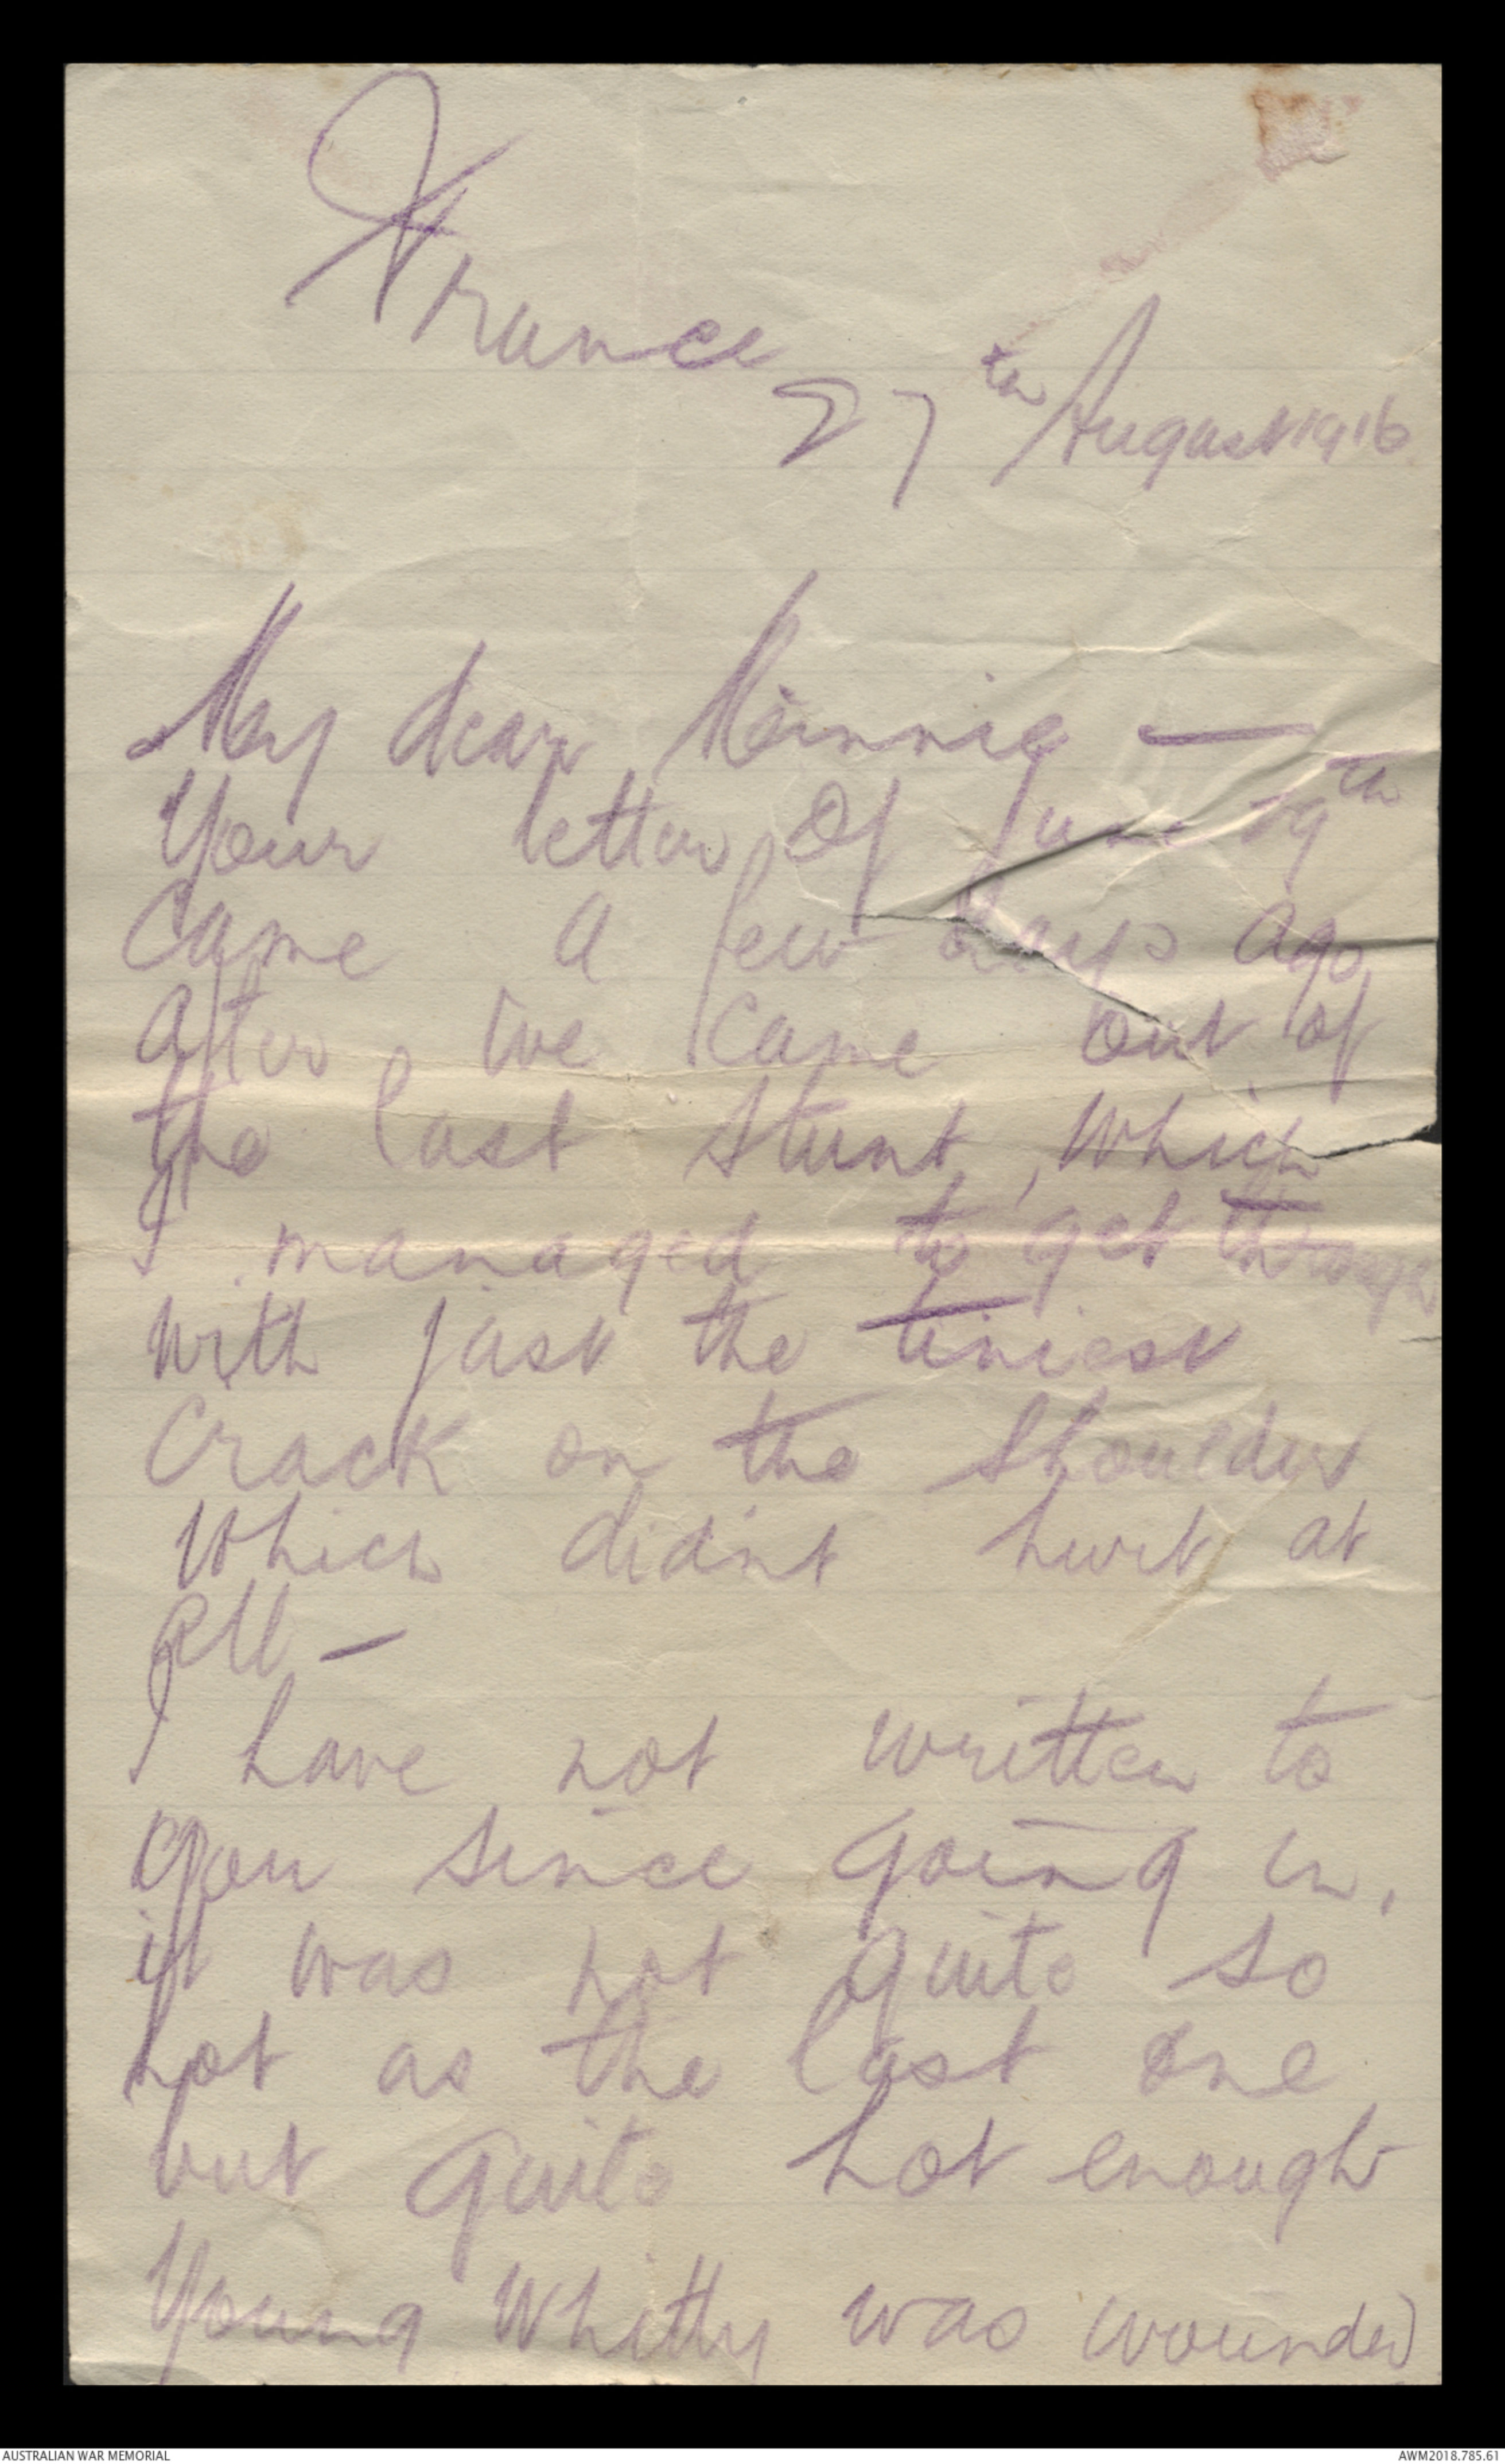 France
27th August 1916
My dear Minnie —
Your letter of June 19th
came a few days ago
after we came out of
the last stunt, which
I managed to get through
with just the tiniest
crack on the shoulder
which didn't hurt at
all —
I have not written to
you since going in,
it was not quite so
hot as the last one
but quite hot enough
Young Whitty was wounded
AUSTRALIAN WAR MEMORIAL
AWM2018.785.61